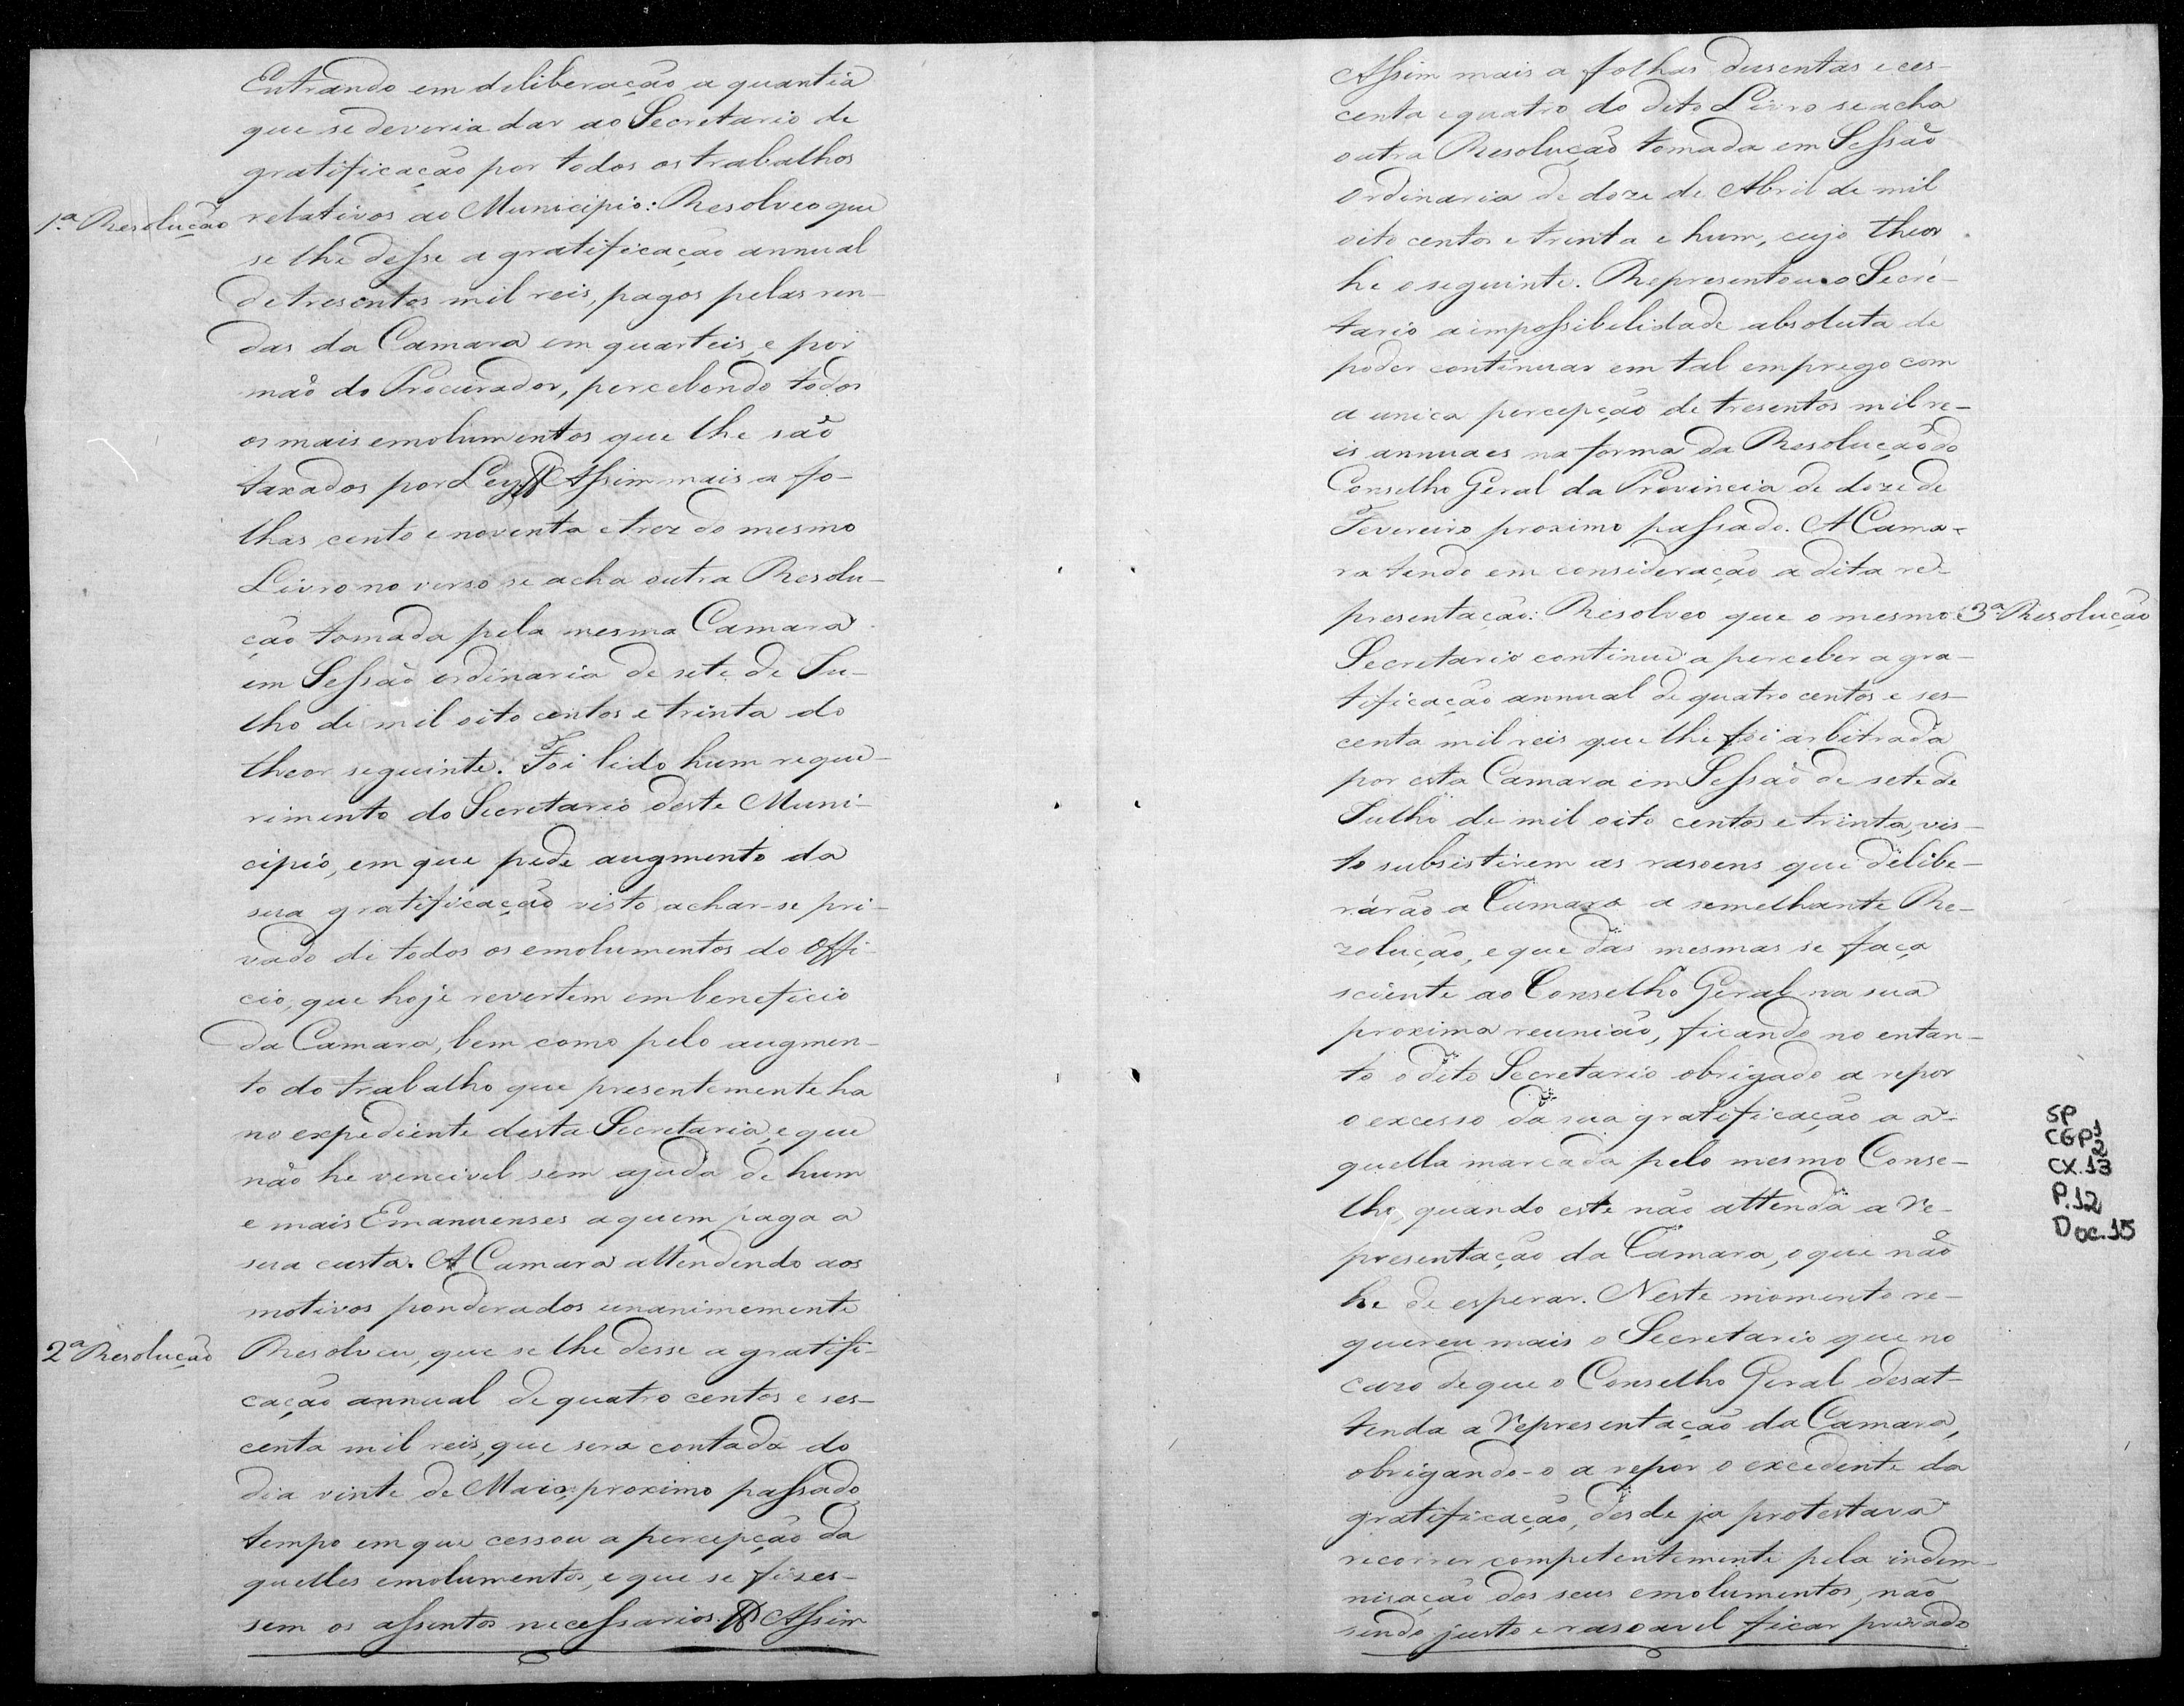 Entrando em deliberação a quantia
que se deveria dar ao Secretario de
gratificação por todos os trabalhos
1.ª Resolução relativos ao Municipio: Resolveo que
se lhe desse a gratificação annual
de tresentos mil reis, pagos pelas ren-
das da Camara em quarteis, e por
mão do Procurador, percebendo todos
os mais emolumentos que lhe são
taxados por Ley Assim mais a fo-
lhas cento e noventa e trez do mesmo
Livro no verso se acha outra Resolu-
ção tomada pela mesma Camara
em Sessão ordinaria de sete de Ju-
lho de mil oito centos e trinta do
theor seguinte. Foi lido hum reque-
rimento do Secretario deste Muni-
cipio, em que pede augmento da
sua gratificação visto achar-se pri-
vado de todos os emolumentos do Offi-
cio, que hoje revertem em beneficio
da Camara, bem como pelo augmen-
to do trabalho que presentemente ha
no expediente desta Secretaria, e que
não he vencivel sem ajuda de hum
e mais Emanuenses a quem paga a
sua custa. A Camara attendendo aos
motivos ponderados unanimemente
2ª Resolução Resolveu, que se lhe desse a gratifi-
cação annual de quatro centos e ses-
centa mil reis, que sera contada do
dia vinte de Maio proximo passado
tempo em que cessou a percepção da
quelles emolumentos, e que se fizes-
sem os assentos necessarios. Assim
Assim mais a folhas dusentas e ces-
centa e quatro do dito Livro se acha
outra Resolução tomada em Sessão
Ordinaria de doze de Abril de mil
oito centos e trinta e hum, cujo theor
he o seguinte. Representou o Secre-
tario a impossibilidade absoluta de
poder continuar em tal emprego com
a unica percepção de tresentos mil re-
is annuaes na forma da Resolução do
Conselho Geral da Provincia de doze de
Fevereiro proximo passado. A Cama-
ra tendo em consideração a dita re-
presentação: Resolveo que o mesmo 3ª Resolução
Secretario continue a perceber a gra-
tificação annual de quatro centos e ses-
centa mil reis que lhe foi arbitrada
por esta Camara em Sessão de sete de
Julho de mil oito centos e trinta, vis-
to subsistirem as rasoens que delibe-
rárão a Camara a semelhante Re-
zolução, e que das mesmas se faça
sciente ao Conselho Geral na sua
proxima reunião, ficando no entan-
to o dito Secretario obrigado a repor
o excesso da sua gratificação a a-
quella marcada pelo mesmo Conse-
lho, quando este não attenda a re-
presentação da Camara, o que não
he de esperar. Neste momento re-
quereu mais o Secretario que no
cazo de que o Conselho Geral desat-
tenda a representação da Camara,
obrigando-o a repor o excedente da
gratificação, desde ja protestava
recorrer competentemente pela indem-
nisação dos seus emolumentos, não
sendo justo e rasoavel ficar privado
SP
CGP1
2
CX.13
P.12
Doc.15